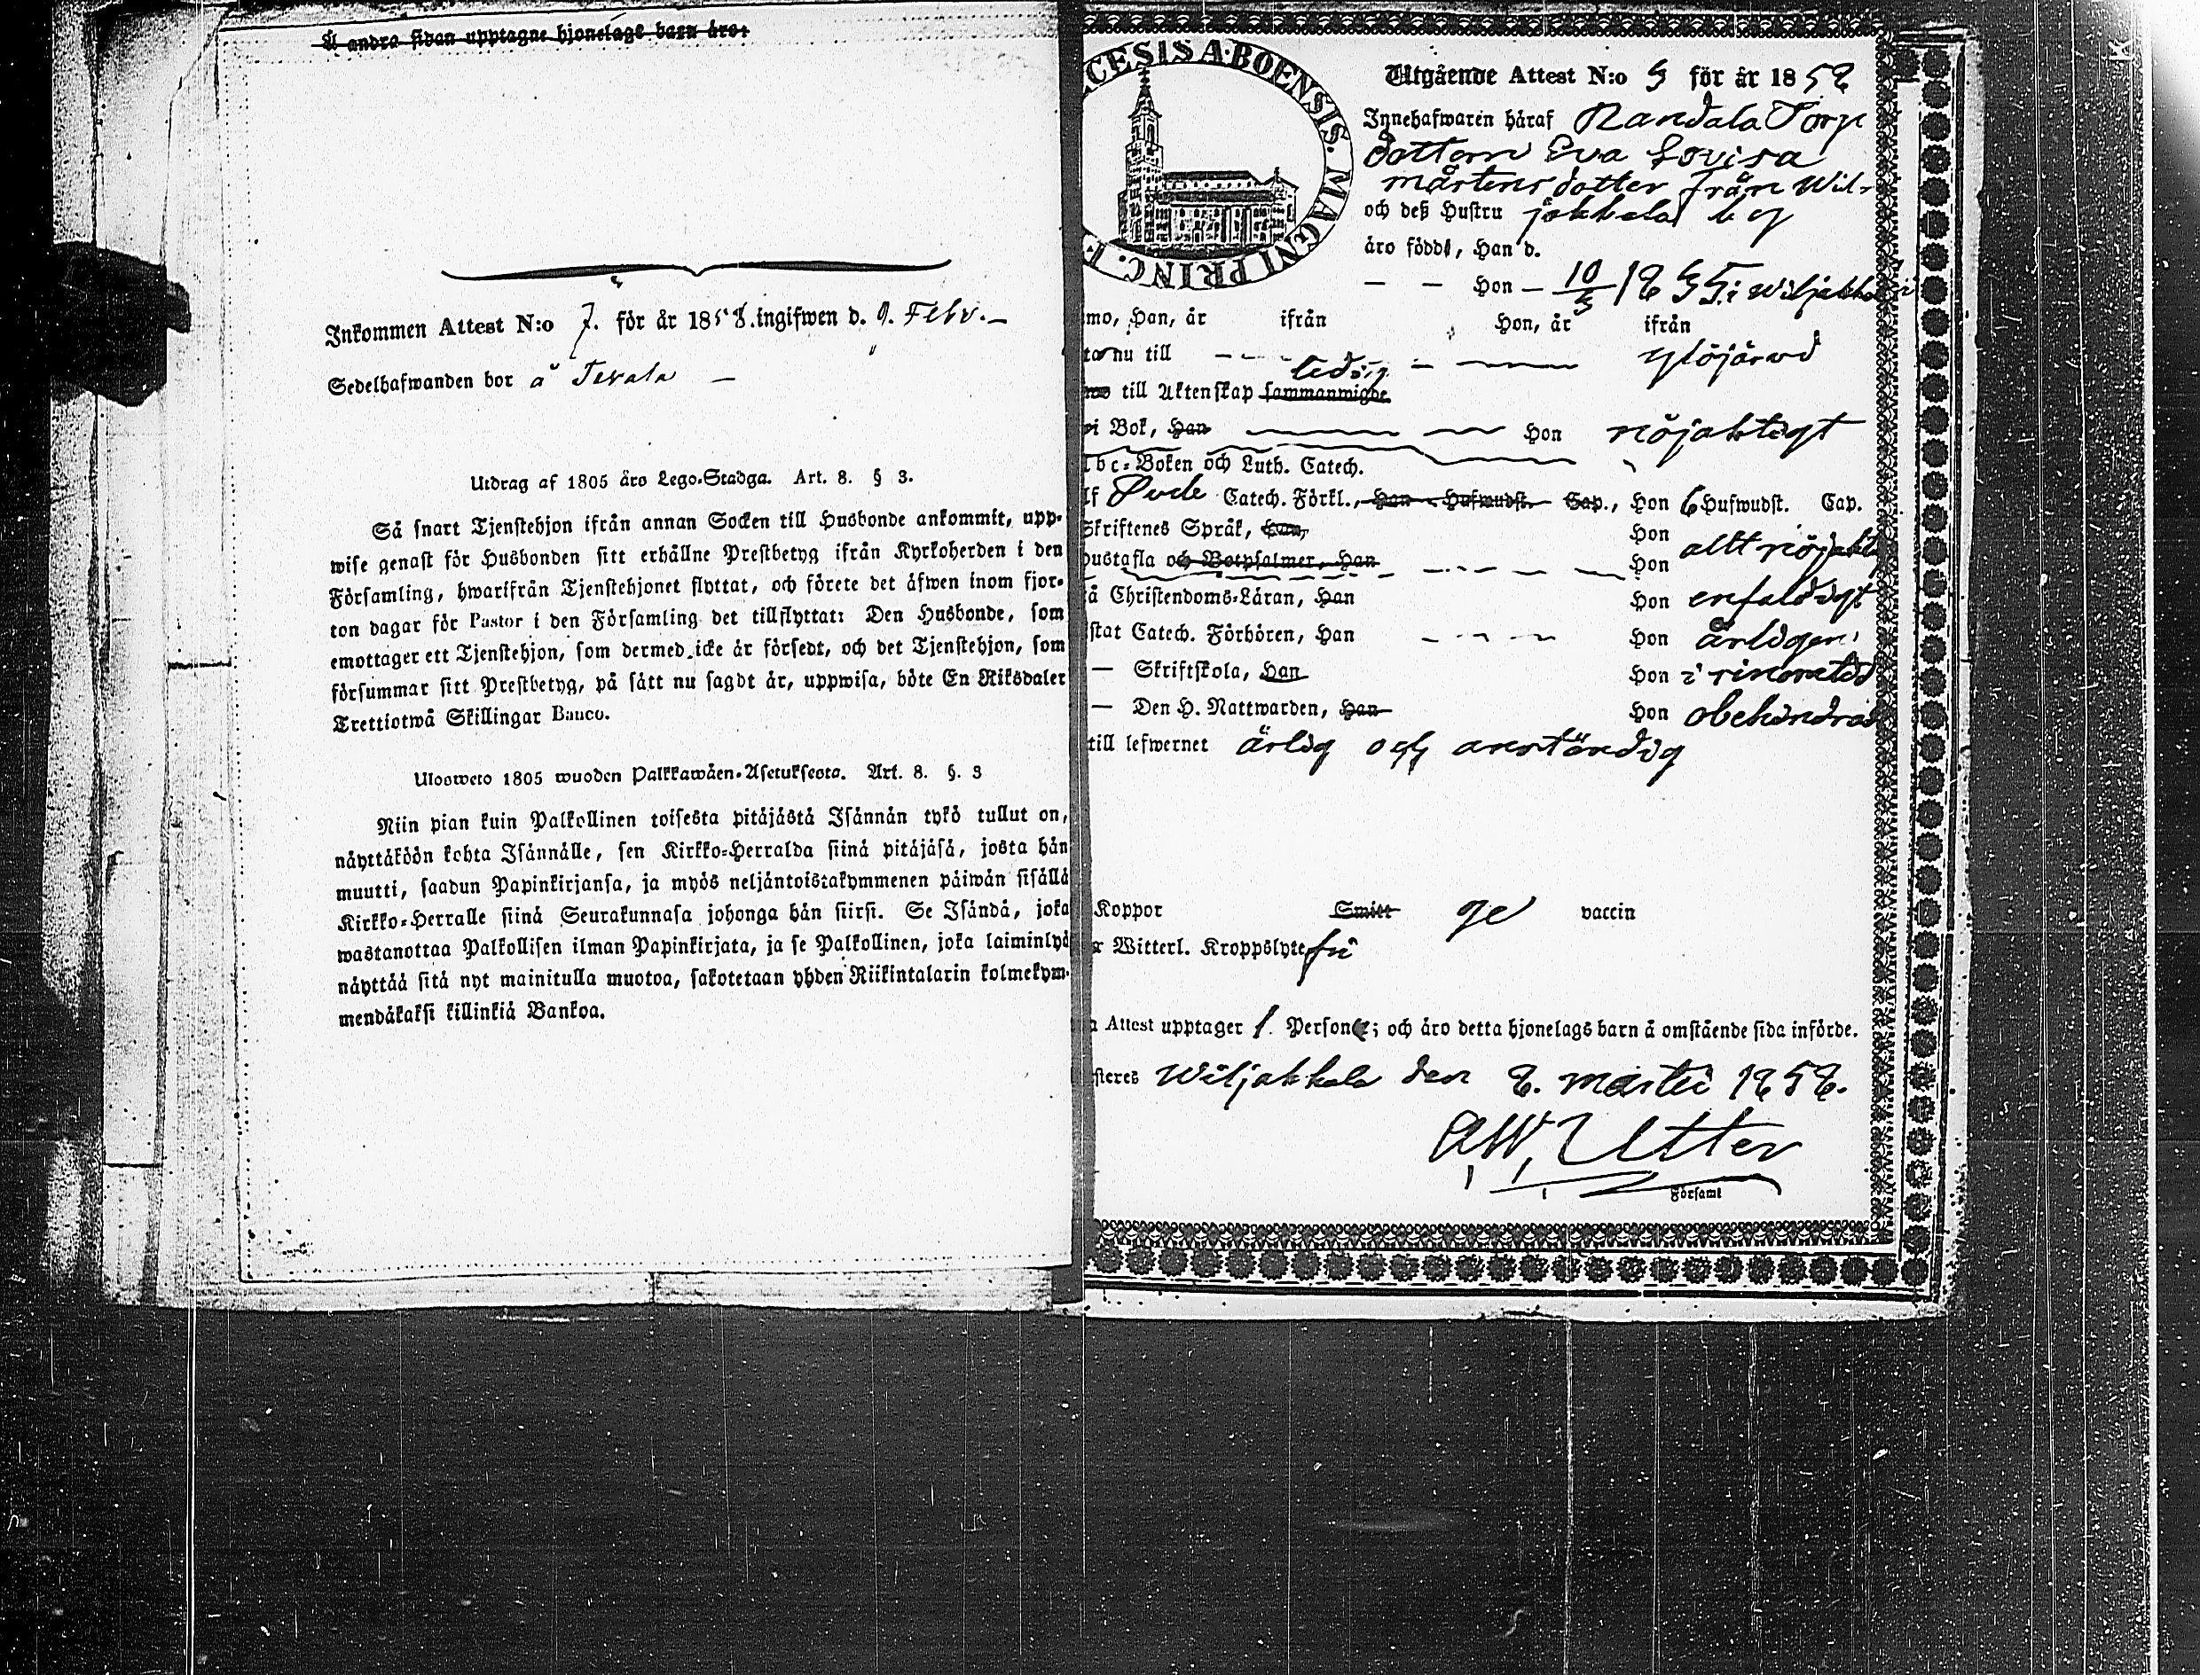 Å andra sidan upptagne hjonelags barn äro:
Inkommen Attest N:o 7. för år 1858. ingifwen d. 9. Febr. –
Sedelhafwanden bor å Tevala –
Utdrag af 1805 års Lego-Stadga. Art. 8. § 3.
Så snart Tjenstehjon ifrån annan Socken till Husbonde ankommit, upp-
wise genast för Husbonden sitt erhållne Prestbetyg ifrån Kyrkoherden i den
Församling, hwarifrån Tjenstehjonet flyttat, och förete det äfwen inom fjor-
ton dagar för Pastor i den Församling det tillflyttat: Den Husbonde, som
emottager ett Tjenstehjon, som dermed icke är försedt, och det Tjenstehjon, som
försummar sitt Prestbetyg, på sätt nu sagdt är, uppwisa, böte En Riksdaler
Trettiotwå Skillingar Banco.
Ulosweto 1805 wuoden Palkkawäen-Asetuksesta. Art. 8. §. 3
Niin pian kuin Palkollinen toisesta pitäjästä Isännän tykö tullut on,
näyttäköön kohta Isännälle, sen Kirkko-Herralda siinä pitäjäsä, josta hän
muutti, saadun Papinkirjansa, ja myös neljäntoistakymmenen päiwän sisällä
Kirkko-Herralle siinä Seurakunnasa johonga hän siirsi. Se Isändä, joka
wastanottaa Palkollisen ilman Papinkirjata, ja se Palkollinen, joka laiminlyö
näyttää sitä nyt mainitulla muotoa, sakotetaan yhden Riikintalarin kolmekym-
mendäkaksi killinkiä Bankoa.
CESIS ABOENSIS. MAGNI PRINC. F
Utgående Attest N:o 3 för år 1858
Innehafwaren häraf Randala Torp
dottern Eva Lovisa
Mårtensdotter från Wil-
och deß Hustru jakkala by
äro födde, Han d.
— — Hon – 10/3 1835 i Wiljakkala
mo, Han, år ifrån Hon, år ifrån
ta nu till – – – – Ylöjärvi
ledig
mo till Äktenskap sammanwigde
i Bok, Han Hon nöjaktigt
bc-Boken och Luth. Catech.
lf Catech. Förkl., Han Hufwudst. Cap., Hon 6 Hufwudst. Cap.
Skriftenes Språk, Han, Hon
allt nöjakt
hustafla och Botpsalmer, Han Hon
ä Christendoms-Läran, Han Hon enfaldigt
istat Catech. Förhören, Han – – – Hon årligen
— Skriftskola, Han Hon i
— Den H. Nattwarden, Han Hon obehindrad
till lefwernet ärlig och anständig
Koppor Smitt ge vaccin
r Witterl. Kroppslyte fri
n Attest upptager 1. Personer; och äro detta hjonelags barn å omstående sida införde.
steres Wiljakkala den 8. Martii 1858.
A.W. Utter
Församl